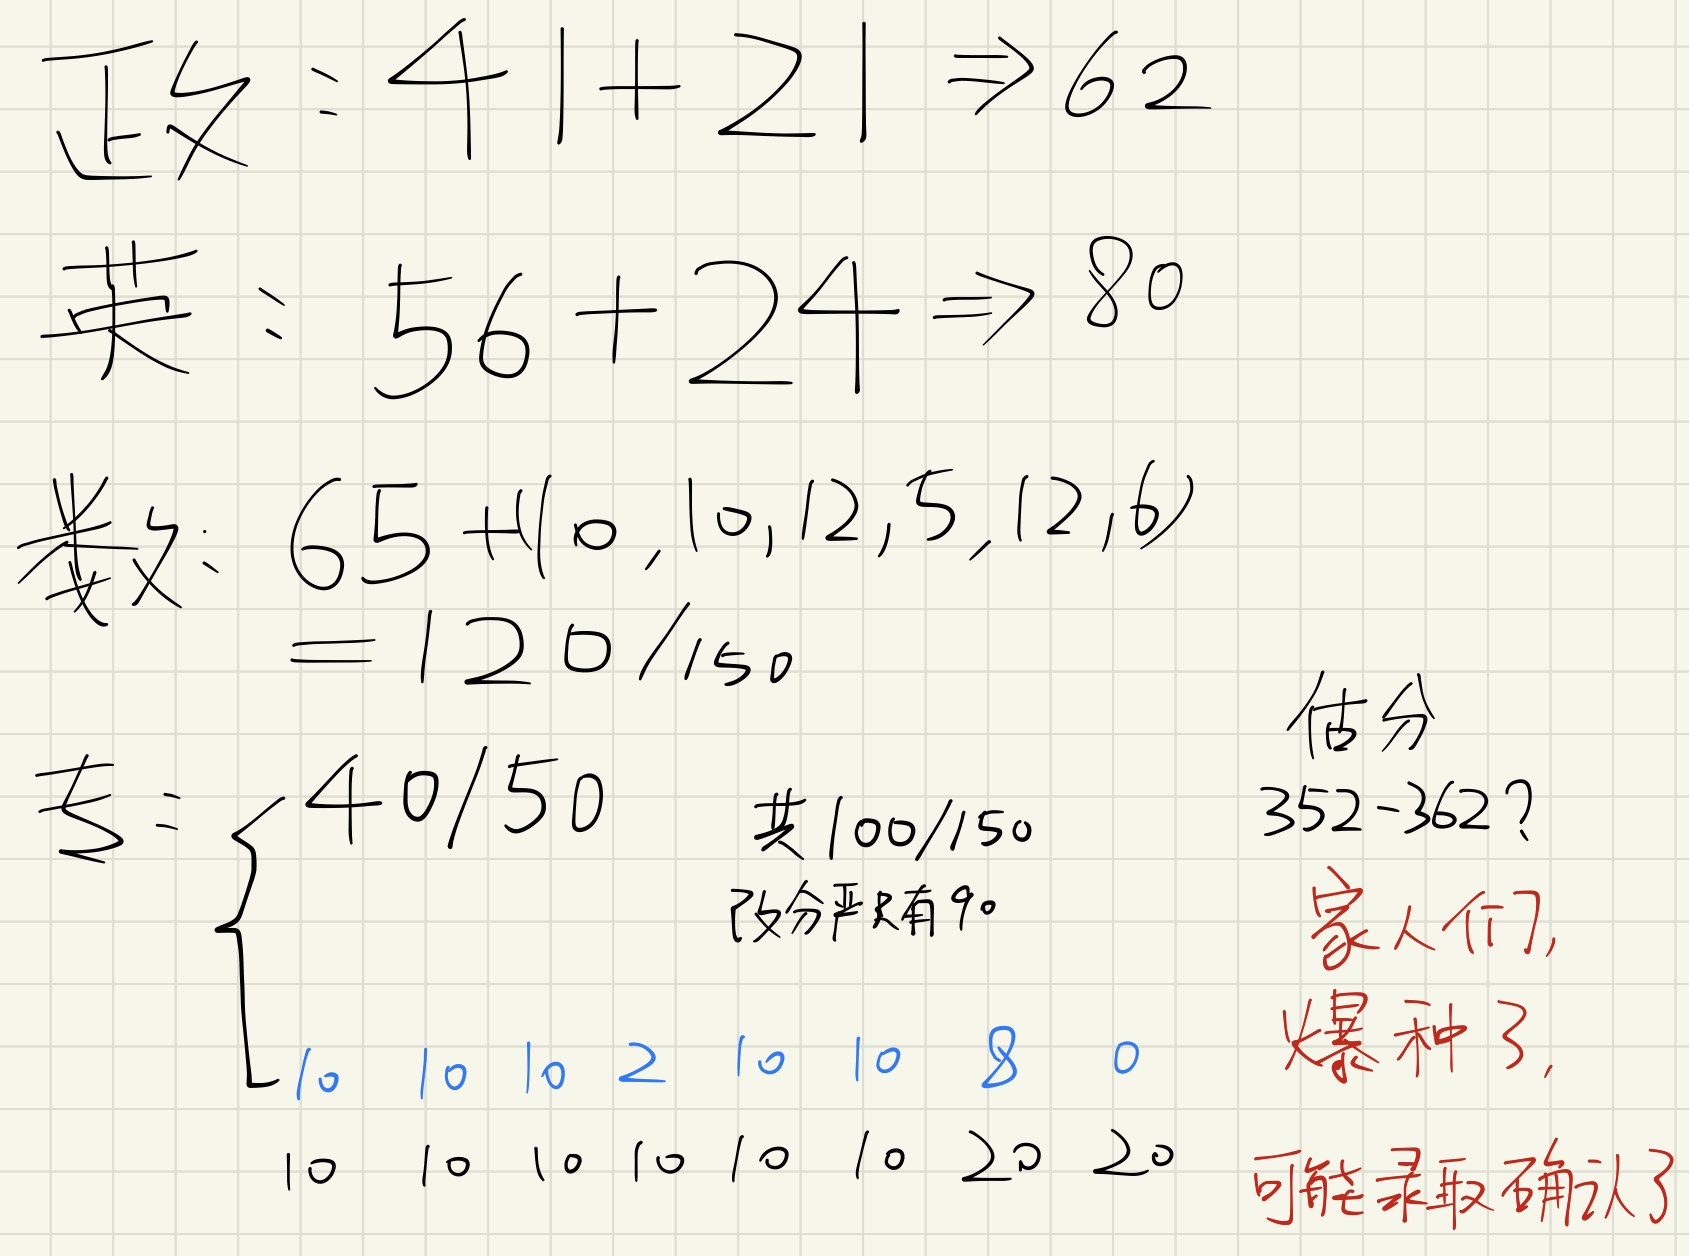 政：41+21⇒62
英：56+24⇒80
数：65+(10,10,12,5,12,6)
=120/150
专：40/50
共100/150
改分严只有90
10 10 10 2 10 10 8 0
10 10 10 10 10 10 20 20
估分
352-362？
家人们,
爆种了,
可能录取确认了